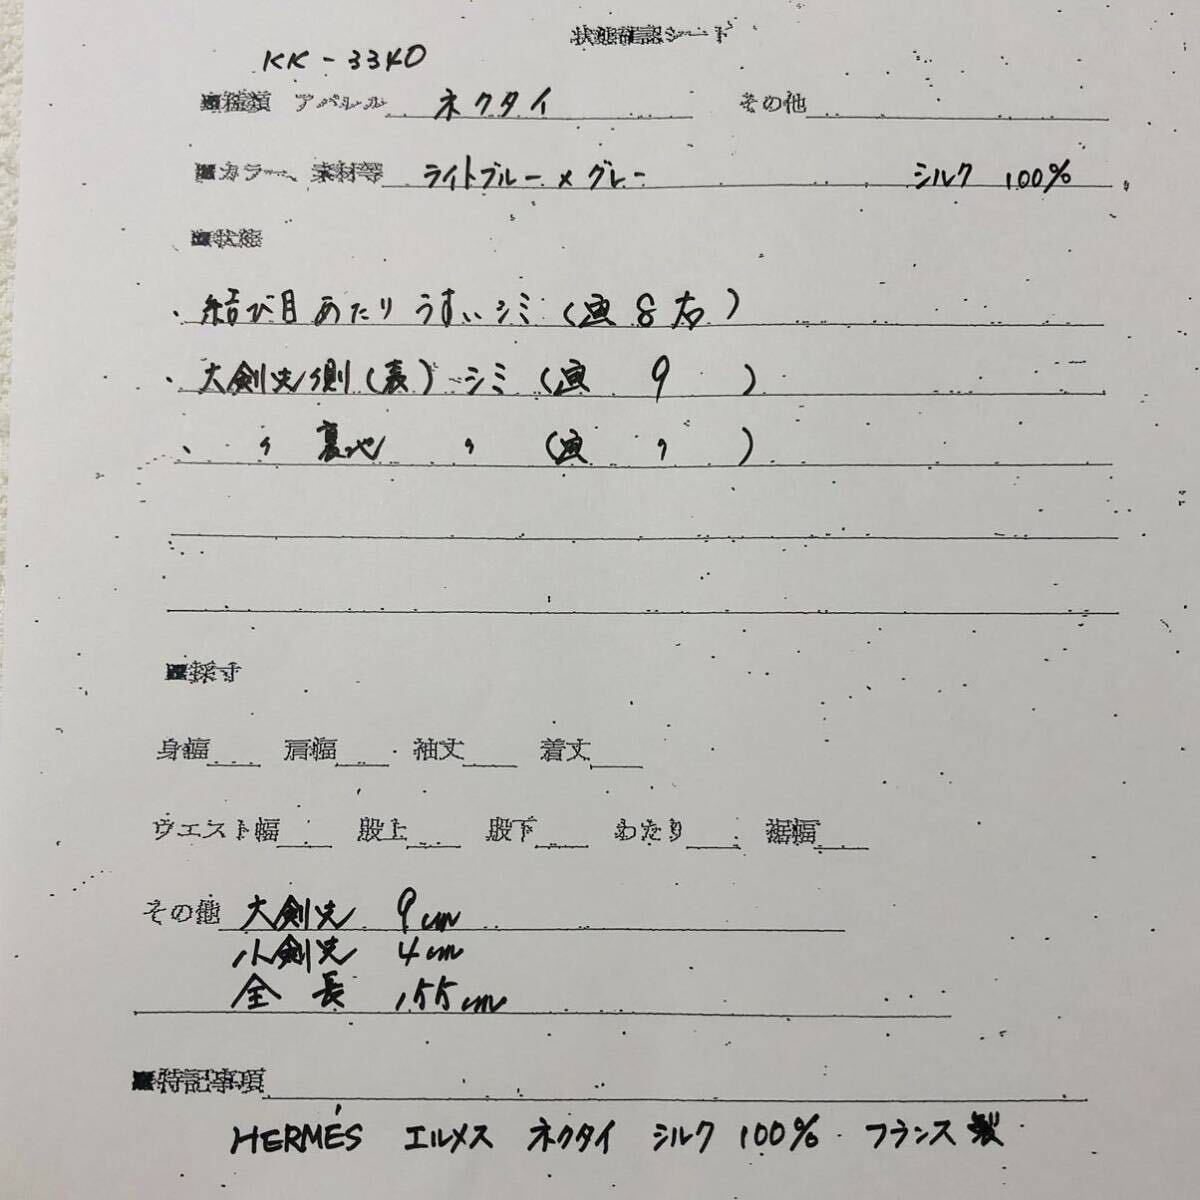 状態確認シート
KK-3340
■種類 アパレル ネクタイ その他
■カラー、素材等 ライトブルー×グレー シルク 100%
■状態
・結び目あたりうすいシミ(画8右)
・大剣先側(表)シミ(画 9 )
・ 〃 裏地 〃 (画 〃 )
■採寸
身幅 肩幅 袖丈 着丈
ウエスト幅 股上 股下 わたり 裾幅
その他 大剣先 9cm
小剣先 4cm
全長 155cm
■特記事項
HERMÉS エルメス ネクタイ シルク 100% フランス製